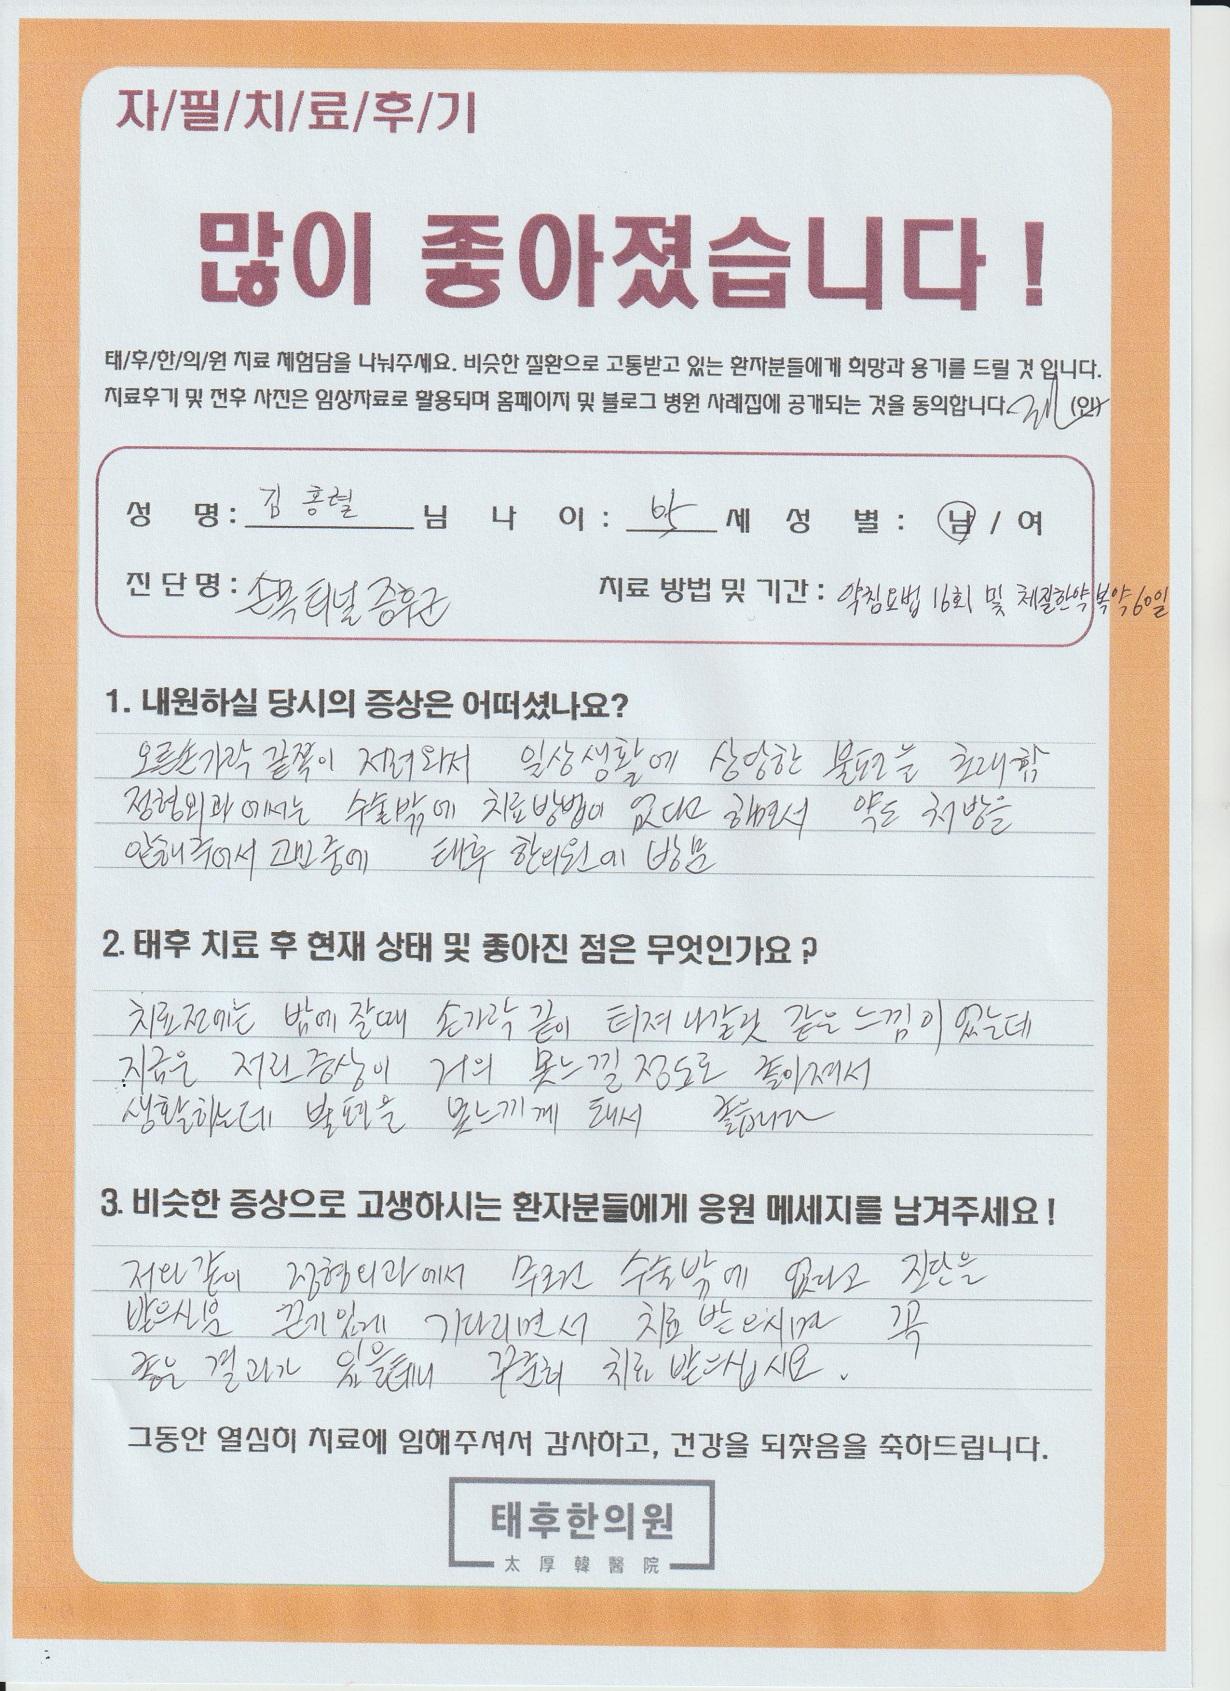 자/필/치/료/후/기
많이 좋아졌습니다 !
태/후/한/의/원 치료 체험담을 나눠주세요. 비슷한 질환으로 고통받고 있는 환자분들에게 희망과 용기를 드릴 것 입니다.
치료후기 및 전후 사진은 임상자료로 활용되며 홈페이지 및 블로그 병원 사례집에 공개되는 것을 동의합니다. (인)
성 명 : 김홍렬 님 나 이 : 세 성 별 : 남 / 여
진 단 명 : 손목 터널 증후군 치료 방법 및 기간 : 약침요법 16회 및 체질한약 복약 60일
1. 내원하실 당시의 증상은 어떠셨나요?
오른손가락 끝쪽이 저려와서 일상생활에 상당한 불편을 초래함
정형외과에서는 수술밖에 치료방법이 없다고 하면서 약도 처방을
안해주어서 고민중에 태후 한의원에 방문
2. 태후 치료 후 현재 상태 및 좋아진 점은 무엇인가요 ?
치료전에는 밤에 잘때 손가락 끝이 터져 나갈것 같은 느낌이 있는데
지금은 저린증상이 거의 못느낄 정도로 좋아져서
생활하는데 불편을 못느끼게 돼서 좋습니다
3. 비슷한 증상으로 고생하시는 환자분들에게 응원 메세지를 남겨주세요 !
저와 같이 정형외과에서 무조건 수술밖에 없다고 진단을
받으신분 끈기있게 기다리면서 치료 받으시면 꼭
좋은 결과가 있을테니 꾸준히 치료 받으십시요.
그동안 열심히 치료에 임해주셔서 감사하고, 건강을 되찾음을 축하드립니다.
태후한의원
太厚韓醫院